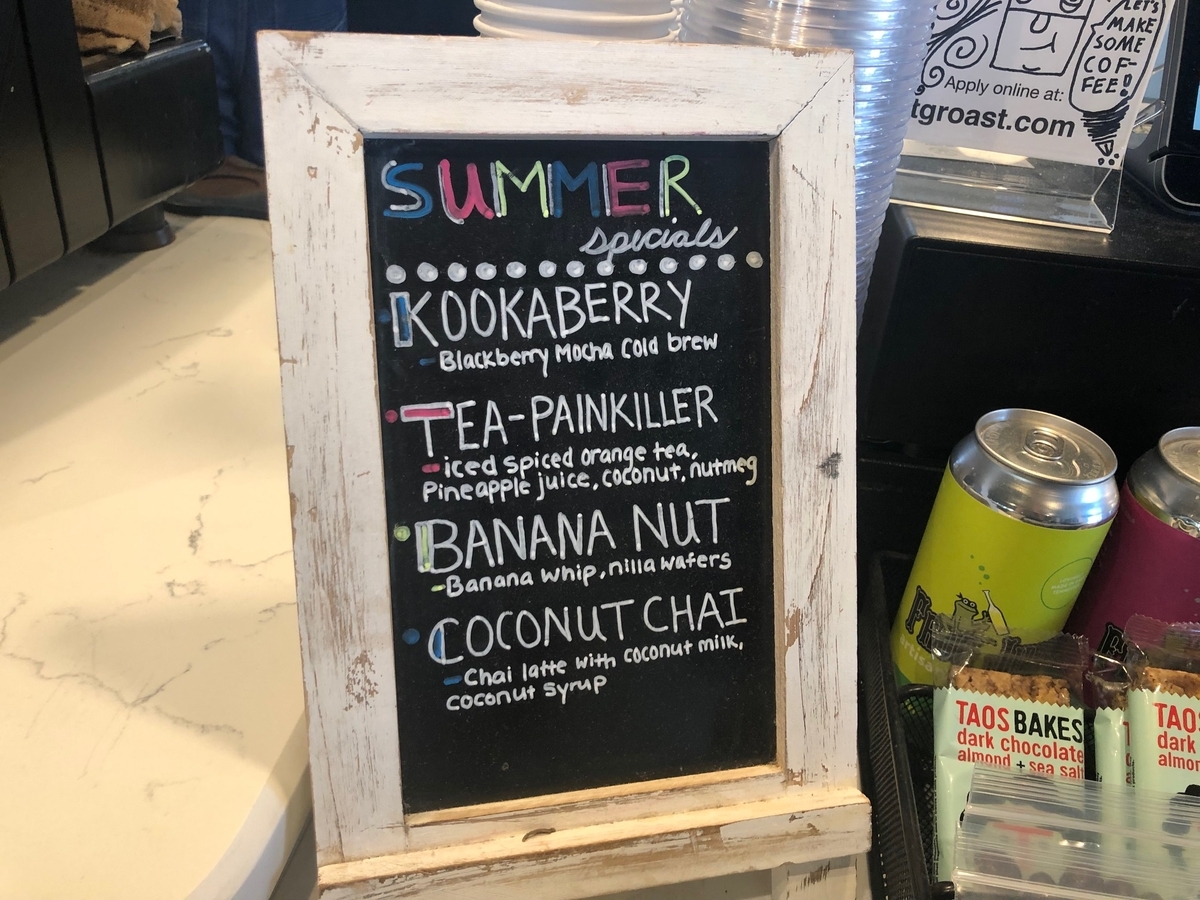 SUMMER
specials
KOOKABERRY
- Blackberry Mocha Cold brew
TEA-PAINKILLER
- iced spiced orange tea,
Pineapple juice, coconut, nutmeg
BANANA NUT
- Banana whip, nilla wafers
COCONUT CHAI
- Chai latte with coconut milk,
coconut syrup
LET'S
MAKE
SOME
COF-
FEE!
Apply online at:
tgroast.com
TAOS BAKES
dark chocolate
almond + sea salt
TAOS
dark
almon